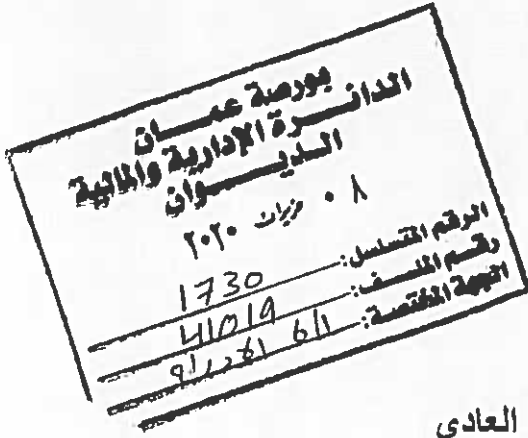 بورصة عمـــان
الدائـــرة الإدارية والمالية
الديـــوان
٠٨ حزيران ٢٠٢٠
الرقم المتسلسل: 1730
رقم الملف:
الجهة المختصة:
العادي